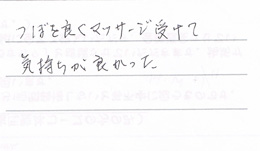 つぼを良くマッサージ受けて
気持ちが良かった